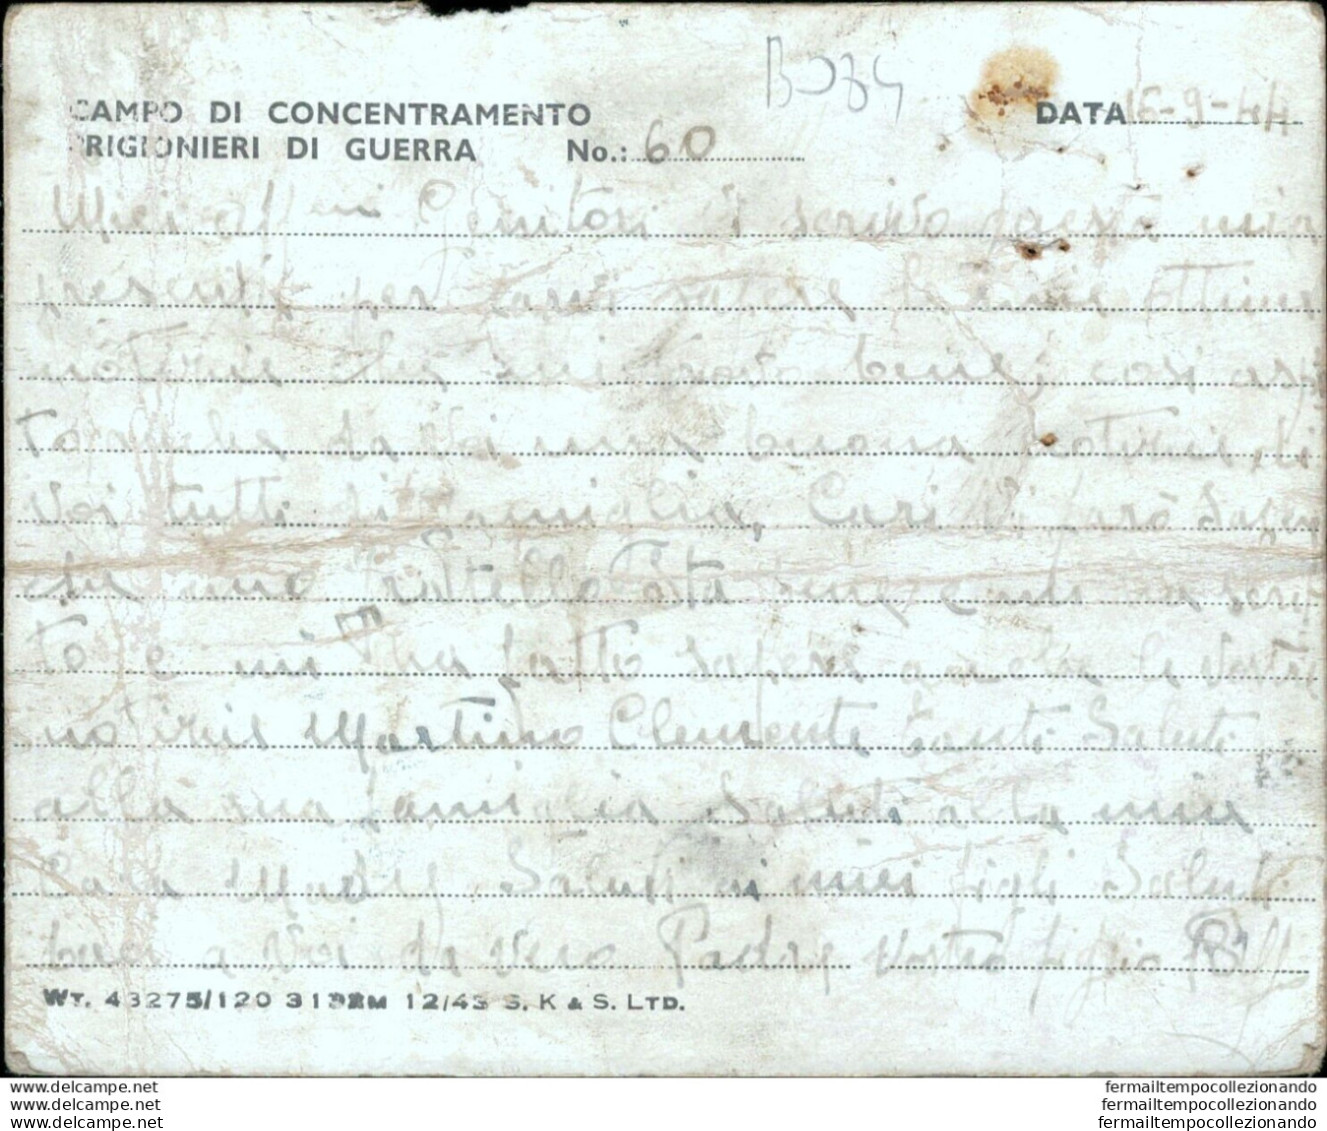 B084
CAMPO DI CONCENTRAMENTO DATA 16-9-44
PRIGIONIERI DI GUERRA No.: 60
Miei Genitori Vi scrivo questa mia
presente per farvi sapere le mie ottime
notizie che mi trovo bene, così asp
to anche da voi una buona notizie, di
Voi tutti di famiglia, Cari Vi farò Sapere
che mio Fratello sta
to e mi ha fatto sapere anche le vostre
notizie Martino Clemente tanti Saluti
alla sua famiglia Saluti alla mia
Cara Saluti ai miei figli Saluti
baci a Voi da vero Padre vostro figlio
WT. 43275/120 3132M 12/43 S. K & S. LTD.
delcampe.net
delcampe.net
delcampe.net
fermailtempocollezionando
fermailtempocollezionando
fermailtempocollezionando